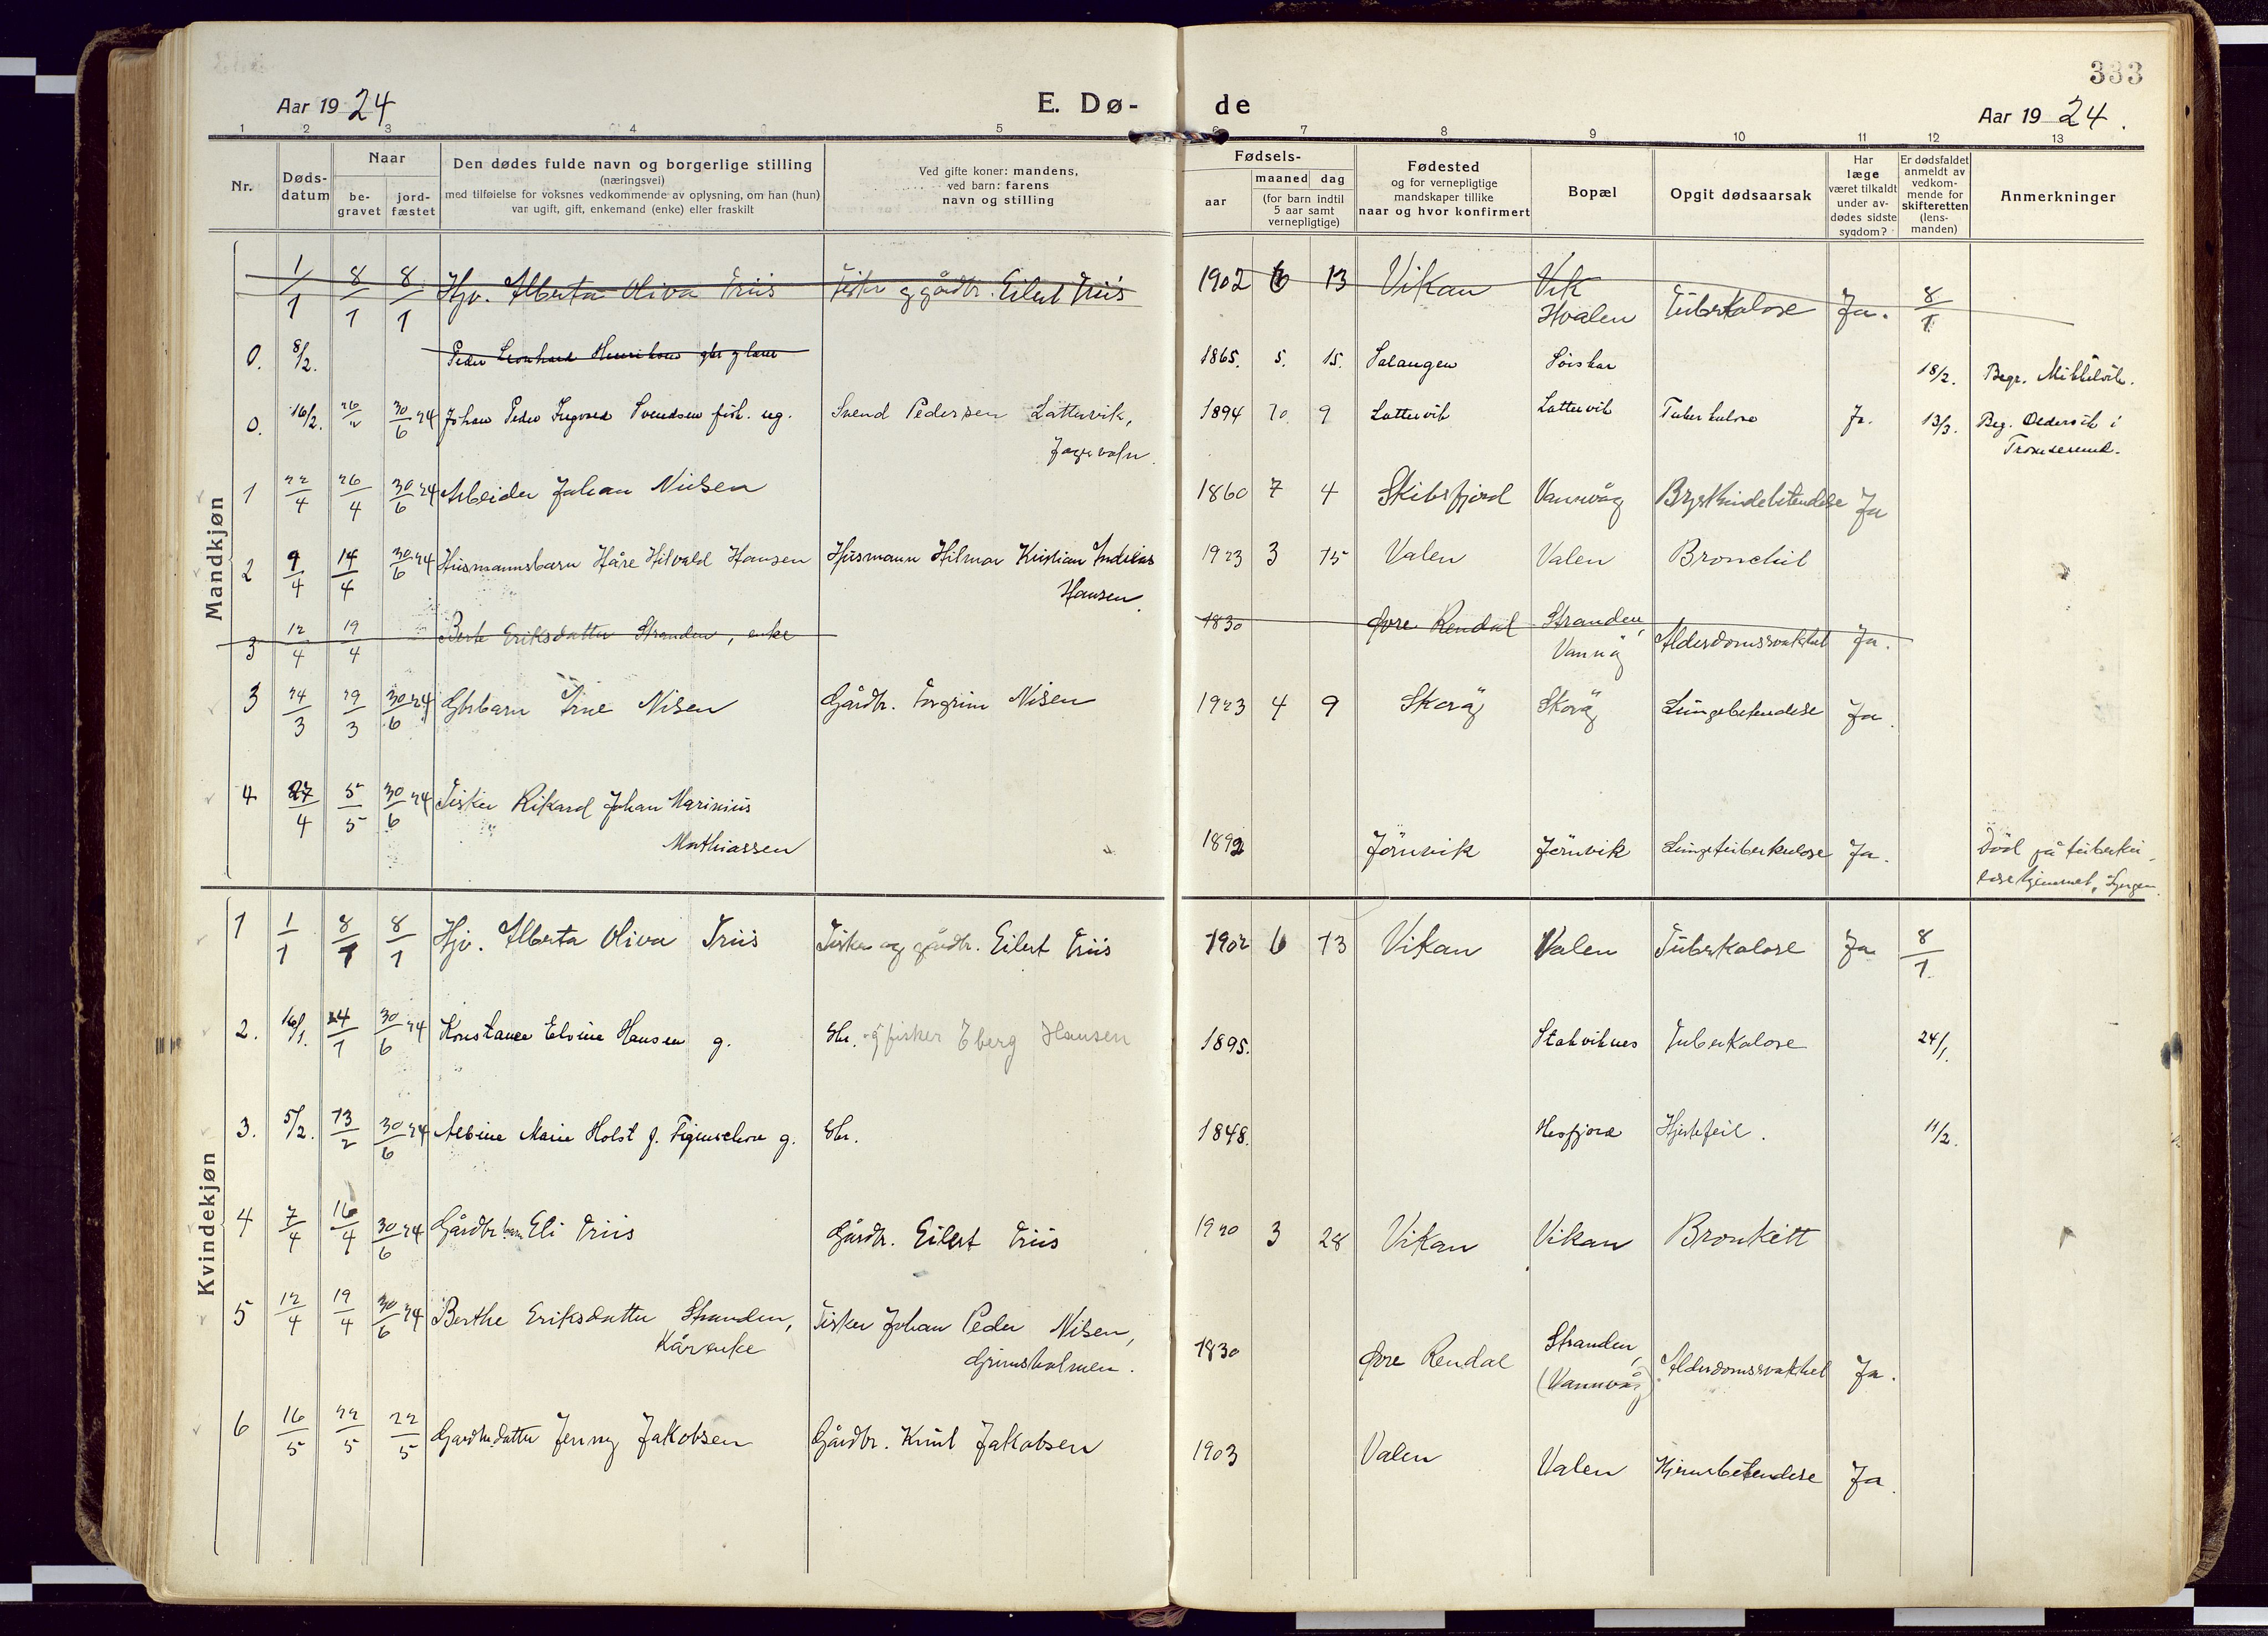 333
Aar 1924 E. Dø- de Aar 1924.
1 2 3 4 5 6 7 8 9 10 11 12 13
Nr. Døds-datum Naar be-gravet jord-fæstet Den dødes fulde navn og borgerlige stilling (næringsvei) med tilføielse for voksnes vedkommende av oplysning, om han (hun) var ugift, gift, enkemand (enke) eller fraskilt Ved gifte koner: mandens, ved barn: farens navn og stilling Fødsels- aar maaned dag (for barn indtil 5 aar samt vernepligtige) Fødested og for vernepligtige mandskaper tillike naar og hvor konfirmert Bopæl Opgit dødsaarsak Har læge været tilkaldt under av-dødes sidste sygdom? Er dødsfaldet anmeldt av vedkom-mende for skifteretten (lens-manden) Anmerkninger
Mandkjøn
1/1 8/1 8/1 Hjv. Alberta Oliva Friis Fisker og gårdbr. Eilert Friis 1902 6 13 Vikan Vik Hvalen Tuberkolose Ja. 8/1
0. 8/2. Peder Leonhard Henriksen gbr g have 1865. 5. 15. Salangen 18/2. Begr. Mikkelvik.
0. 16/2. 26/2 30/6 24 Johan Peder Ingvard Svendsen fisk. ug. Svend Pedersen Lattervik, 1894 10 9 Lattervik Lattervik Tuberkulose Ja. 13/3. Beg. Oldervik i
Jægervatn. Tromsesund.
1 22/4 26/4 30/6 24 Arbeider Johan Nielsen 1860 7 4 Skibsfjord Vannvåg Brysthindebetendelse Ja
2 9/4 14/4 30/6 24 Husmannsbarn Håre Hilvald Hansen Husmann Hilmar Kristian Andreas 1923 3 15 Valen Valen Bronchit
Hansen.
3 12/4 19/4 Berte Eriksdatter Stranden, enke 1830 Øvre Rendal Stranden, Vannvåg Alderdomssvakhet Ja.
3 24/3 29/3 30/6 24 Gbrbarn Arne Nilsen Gårdbr. Torgrim Nilsen 1923 4 9 Skoråg Skoråg Lungebetendelse Ja.
4 27/4 5/5 30/6 24 Fisker Rikard Johan Marinius
Mathiassen 1892 Jörnvik Jörnvik Lungetuberkulose Ja. Död på tuberku-
losehjemmet, Lyngen.
Kvindekjøn
1 1/1 8/1 8/1 Hjv. Alberta Oliva Friis Fisker og gårdbr. Eilert Friis 1902 6 13 Vikan Valen Tuberkolose Ja 8/1.
2. 16/1. 24/1 30/6 24 Konstance Elvine Hansen g. Gbr. og fisker Eberg Hansen 1895. Stakviknes Tuberkolose 24/1.
3. 5/2. 13/2 30/6 24 Albine Marie Holst f. Figenschou g. Gbr. 1848. Hesfjord Hjertefeil. 11/2.
4 7/4 16/4 30/6 24 Gårdbr barn Eli Friis Gårdbr. Eilert Friis 1920 3 28 Vikan Vikan Bronkitt
5 12/4 19/4 30/6 24 Berthe Eriksdatter Stranden, Fisker Johan Peder Nilsen, 1830 Øvre Rendal Stranden, Alderdomssvakhet Ja.
Kårenke Grimsholmen. (Vannvåg)
6 16/5 22/5 22/5 Gaardbr.datter Jenny Jakobsen Gårdbr. Knut Jakobsen 1903 Valen Valen Hjernebetendelse Ja.